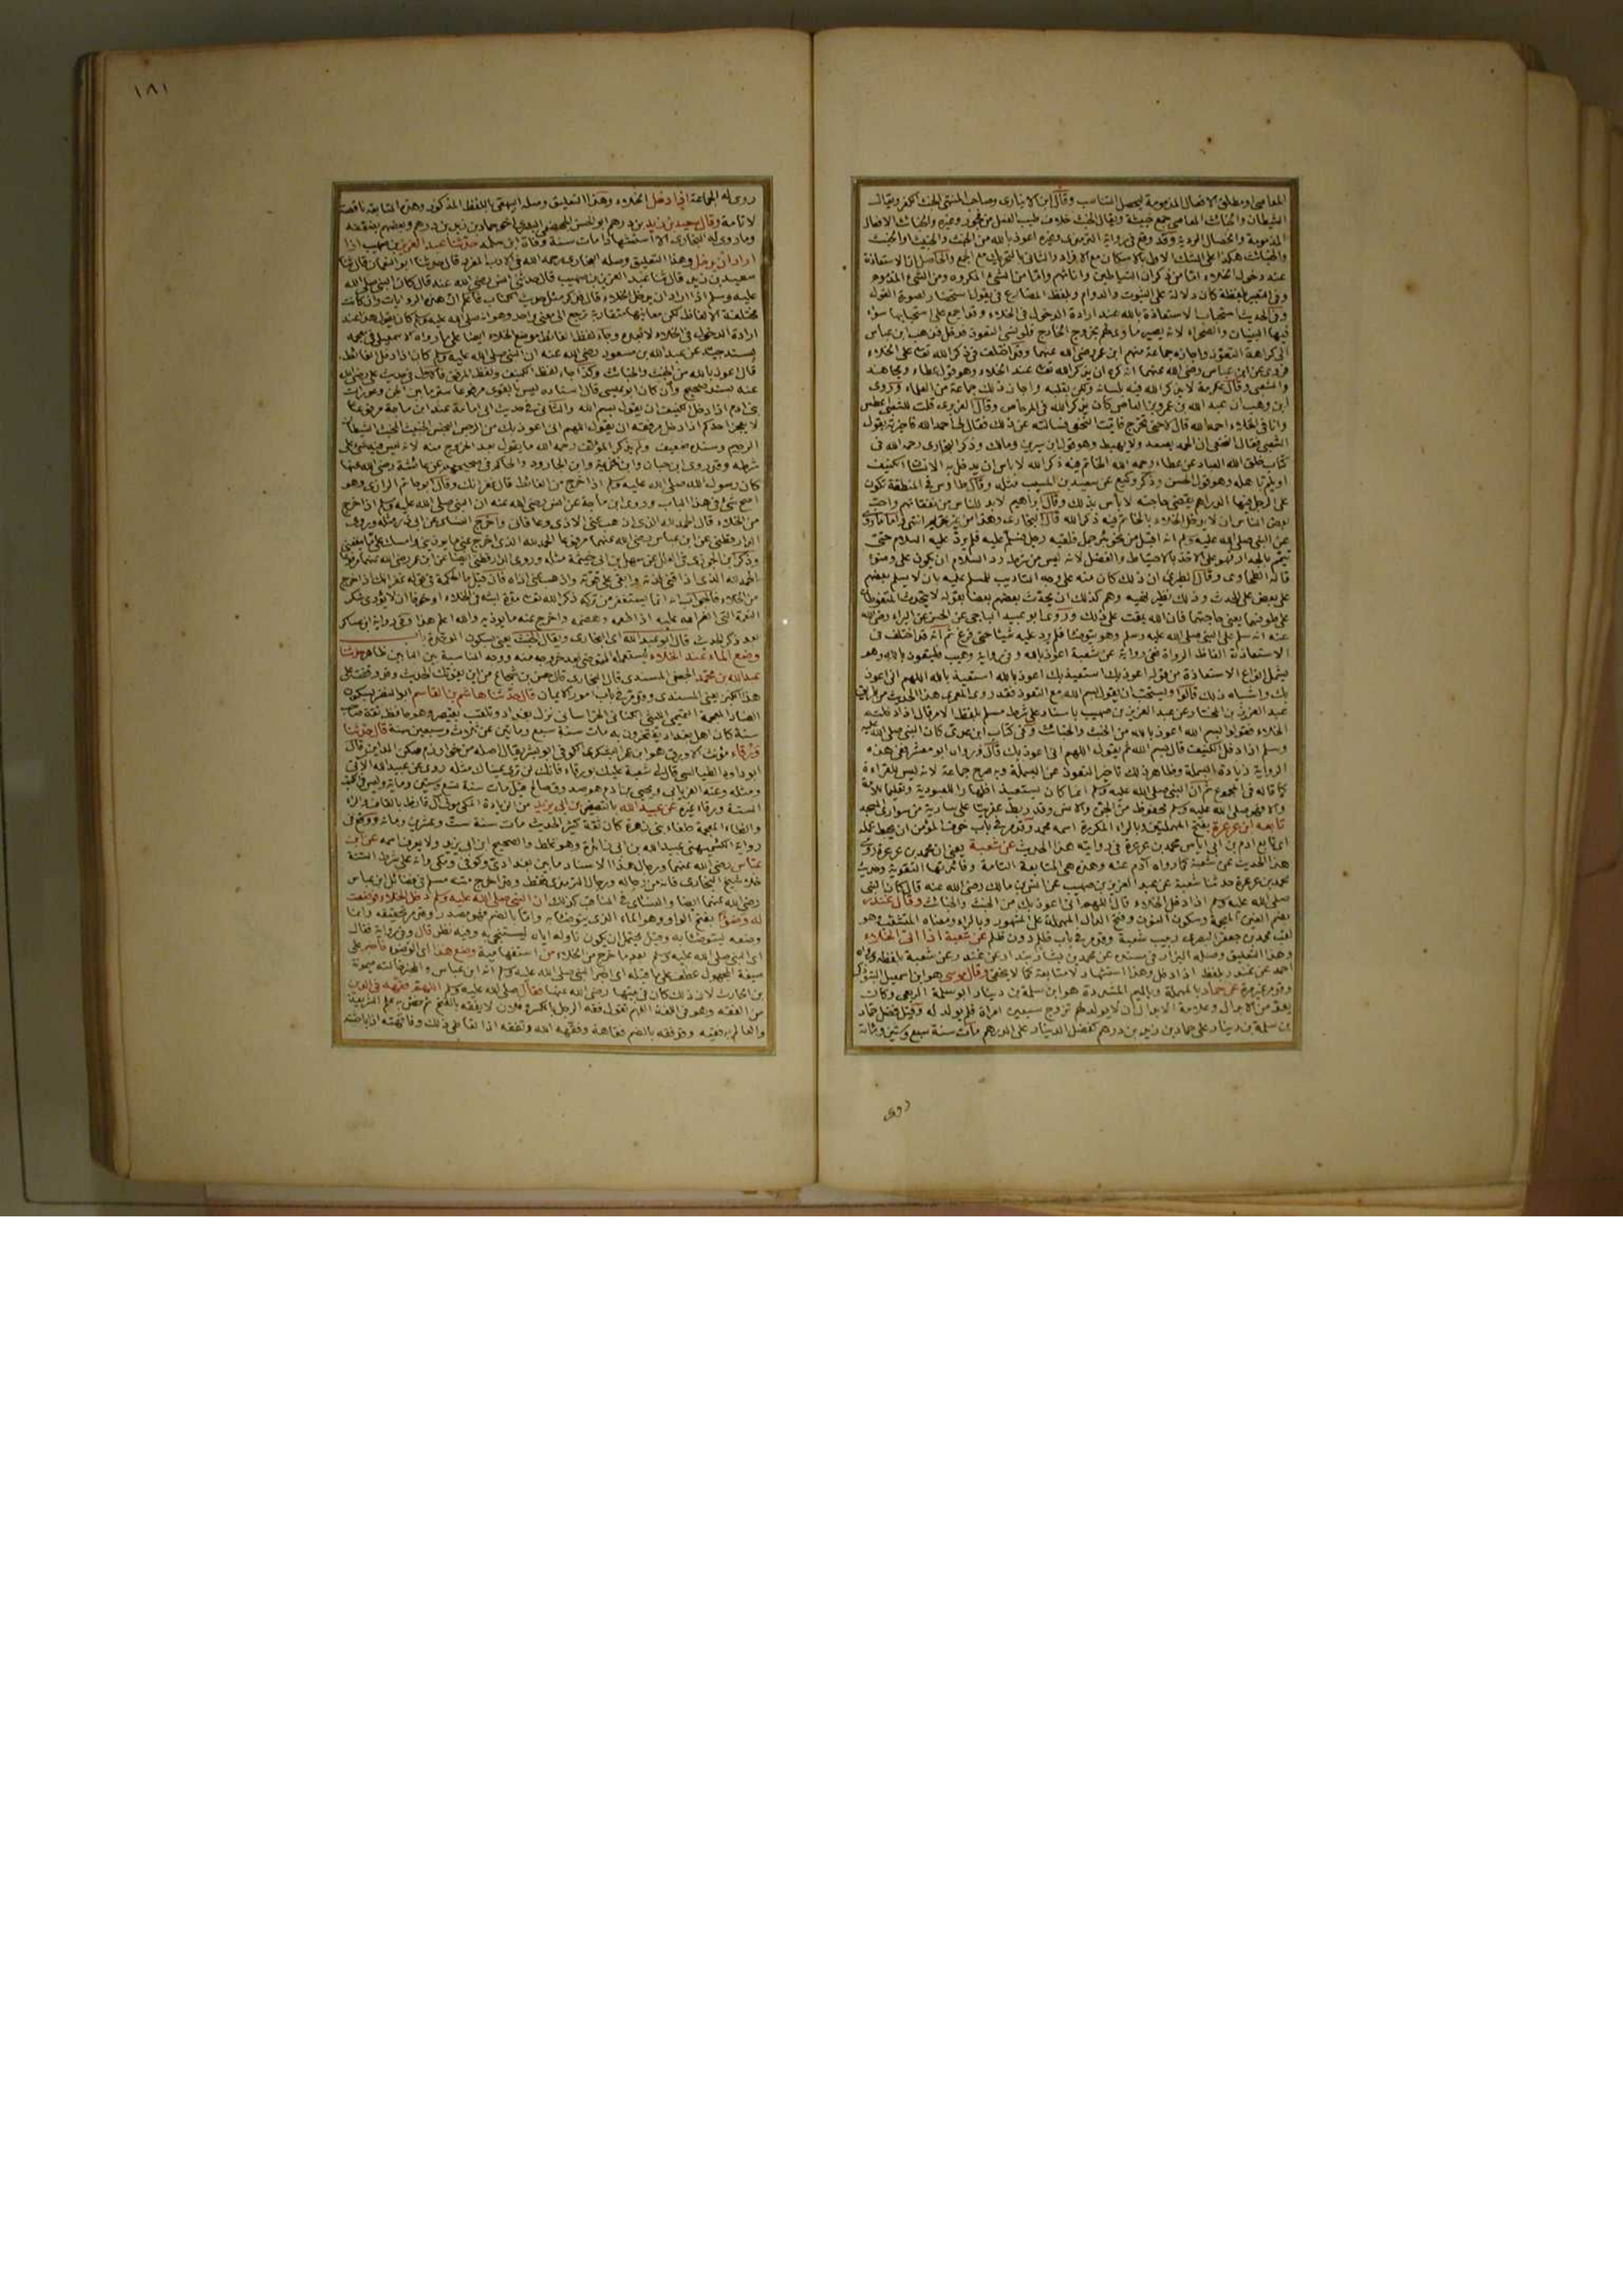 المعاصي ومطلق الافعال المذمومة ليحصل التناسب وقال ابن الانباري وصاحب المنتهى الخبث الكفر ويقال
الشيطان والخبائث المعاصي جمع خبيثة ويقال الخبث خلاف طيب الفعل من فجور وغيره والخبائث الافعال
المذمومة والخصال الردية وقد وقع في رواية الترمذي وغيره اعوذ بالله من الخبث والخبيث او الخبث
والخبائث هكذا على الشك الاول بالاسكان مع الافراد والثاني بالتحريك مع الجمع والحاصل ان الاستعاذة
عند دخول الخلاء اما من ذكران الشياطين واناثهم واما من الشيء المكروه ومن الشيء المذموم
وفي التعبير بلفظة كان دلالة على الثبوت والدوام وبلفظ المضارع في يقول استحضار لصورة القول
وفي الحديث استحباب الاستعاذة بالله عند ارادة الدخول في الخلاء وقد اجمع على استحبابها سواء
فيها البنيان والصحراء لانه يصير مأوى لهم بخروج الخارج فلو نسي التعوذ فدخل فذهب ابن عباس
الى كراهة التعوذ واجازه جماعة منهم ابن عمر رضي الله عنهما وقد اختلف في ذكر الله تعالى على الخلاء
فروى عن ابن عباس رضي الله عنهما انه كره ان يذكر الله تعالى عند الخلاء وهو قول عطاء ومجاهد
والشعبي وقال عكرمة لا يذكر الله فيه بلسانه ولكن بقلبه واجاز ذلك جماعة من العلماء وروى
ابن وهب ان عبد الله بن عمرو بن العاص كان يذكر الله في المرحاض وقال العزرمي قلت للشعبي اعطس
وانا في الخلاء احمد الله قال لا حتى تخرج فاتيت النخعي فسألته عن ذلك فقال لي احمد الله فاخبرته بقول
الشعبي فقال النخعي ان الحمد يصعد ولا يهبط وهو قول ابن سيرين ومالك وذكر البخاري رحمه الله في
كتاب خلق الله العباد عن عطاء رحمه الله الخاتم فيه ذكر الله لا باس ان يدخل به الانسان الكنيف
او يلم باهله وهو قول الحسن وذكر وكيع عن سعيد بن المسيب مثله وقال طاوس في المنطقة تكون
على الرجل فيها الدراهم يقضي حاجته لا باس بذلك وقال ابراهيم لابد للناس من نفقاتهم واحب
بعض الناس ان لا يدخل الخلاء بالخاتم فيه ذكر الله قال البخاري وهذا من غير تحريم انتهى واما ما روي
عن النبي صلى الله عليه وسلم انه اقبل من نحو بئر جمل فلقيه رجل فسلم عليه فلم يرد عليه السلام حتى
تيمم بالجدار فهو على الاخذ بالاحتياط والفضل لانه ليس من شرط رد السلام ان يكون على وضوء
قاله الطحاوي وقال الطبري ان ذلك كان منه على وجه التاديب للمسلم عليه بان لا يسلم بعضهم
على بعض على الحدث وذلك نظير نهيه وهم كذلك ان يحدث بعضهم بعضا بقوله لا يتحدث المتغوطان
على طوفهما يعني حاجتهما فان الله يمقت على ذلك وروى ابو عبيد الباجي عن الحسن عن البراء رضي الله
عنه انه سلم على النبي صلى الله عليه وسلم وهو يتوضأ فلم يرد عليه شيئا حتى فرغ ثم انه قد اختلف في
الاستعاذة الفاظ الرواة ففي رواية عن شعبة اعوذ بالله وفي رواية وهيب فليتعوذ بالله وهو
يشمل انواع الاستعاذة من قوله اعوذ بك استعيذ بك اعوذ بالله استعيذ بالله اللهم اني اعوذ
بك واشباه ذلك قالوا ويستحب ان يقول بسم الله مع التعوذ فقد روى المعمري هذا الحديث من طريق
عبد العزيز بن المختار عن عبد العزيز بن صهيب باسناد على شرط مسلم بلفظ الامر قال اذا دخلتم
الخلاء فقولوا بسم الله اعوذ بالله من الخبث والخبائث وفي كتاب ابن عدي كان النبي صلى الله عليه
وسلم اذا دخل الكنيف قال بسم الله ثم يقول اللهم اني اعوذ بك قال رواه ابو معشر ففي هذه
الرواية زيادة البسملة وظاهر ذلك تاخير التعوذ عن البسملة وبه صرح جماعة لانه ليس للقراءة
كما قاله في المجموع ثم ان النبي صلى الله عليه وسلم انما كان يستعيذ اظهارا للعبودية وتعليما للامة
والا فهو صلى الله عليه وسلم محفوظ من الجن والانس وقد ربط عفريتا على سارية من سواري المسجد
تابعه ابن عرعرة بفتح المهملتين وبالراء المكررة اسمه محمد وقد مر في باب خوف المؤمن ان يحبط عمله
اي تابع ادم بن ابي اياس محمد بن عرعرة في روايته هذا الحديث عن شعبة يعني ان محمد بن عرعرة روى
هذا الحديث عن شعبة كما رواه آدم عنه وهذه هي المتابعة التامة وفائدتها التقوية وحديث
محمد بن عرعرة حدثنا شعبة عن عبد العزيز بن صهيب عن انس بن مالك رضي الله عنه قال كان النبي
صلى الله عليه وسلم اذا دخل الخلاء قال اللهم اني اعوذ بك من الخبث والخبائث وقال غندر
بضم الغين المعجمة وسكون النون وفتح الدال المهملة على المشهور وبالراء ومعناه المشغب وهو
لقب محمد بن جعفر البصري ربيب شعبة وقد مر في باب ظلم دون ظلم عن شعبة اذا اتى الخلاء
وهذا التعليق وصله البزار في مسنده عن محمد بن بشار بندار عن غندر عن شعبة بلفظه ورواه
احمد عن غندر بلفظ اذا دخل وهذا استشهاد لا متابعة كما لا يخفى وقال موسى هو ابن اسمعيل التبوذكي
وقد مر غير مرة عن حماد بالمهملة وبالميم المشددة هو ابن سلمة بن دينار ابو سلمة الربعي وكان
يعد من الابدال وعلامة الابدال ان لا يولد لهم تزوج سبعين امراة فلم يولد له وقيل فضل حماد
بن سلمة بن دينار على حماد بن زيد بن درهم كفضل الدينار على الدرهم مات سنة سبع وستين ومائة
روى
١٨١
روى له الجماعة اذا دخل الخلاء وهذا التعليق وصله البيهقي باللفظ المذكور وهذه المتابعة ناقصة
لا تامة وقال سعيد بن زيد بن درهم ابو الحسن الجهضمي البصري اخو حماد بن زيد بن درهم وبعضهم يضعفه
وما روى له البخاري الا استشهادا مات سنة وفاة ابن سلمة حدثنا عبد العزيز بن صهيب اذا
اراد ان يدخل وهذا التعليق وصله البخاري رحمه الله في الادب المفرد قال حدثنا ابو النعمان قال ثنا
سعيد بن زيد قال ثنا عبد العزيز بن صهيب قال حدثني انس رضي الله عنه قال كان النبي صلى الله
عليه وسلم اذا اراد ان يدخل الخلاء قال فذكر مثل حديث الكتاب فاعلم ان هذه الروايات وان كانت
مختلفة الالفاظ لكن معانيها متقاربة ترجع الى معنى واحد وهو انه صلى الله عليه وسلم كان يقول هذا عند
ارادة الدخول في الخلاء لا بعده وجاء لفظ الغائط موضع الخلاء ايضا على ما رواه الاسمعيلي في معجمه
بسند جيد عن عبد الله بن مسعود رضي الله عنه ان النبي صلى الله عليه وسلم كان اذا دخل الغائط
قال اعوذ بالله من الخبث والخبائث وكذا جاء لفظ الكنيف ولفظ المرفق فالاول في حديث علي رضي الله
عنه بسند صحيح وان كان ابو عيسى قال اسناده ليس بالقوي مرفوعا ستر ما بين الجن وعورات
بني ادم اذا دخل الكنيف ان يقول بسم الله والثاني في حديث ابي امامة عند ابن ماجة مرفوعا
لا يعجز احدكم اذا دخل مرفقه ان يقول اللهم اني اعوذ بك من الرجس النجس الخبيث المخبث الشيطان
الرجيم وسنده ضعيف ولم يذكر المؤلف رحمه الله ما يقول بعد الخروج منه لانه ليس فيه شيء على
شرطه وقد روى ابن حبان وابن خزيمة وابن الجارود والحاكم في صحيحهم عن عائشة رضي الله عنها
كان رسول الله صلى الله عليه وسلم اذا خرج من الغائط قال غفرانك وقال ابو حاتم الرازي وهو
اصح شيء في هذا الباب وروى ابن ماجة عن انس رضي الله عنه ان النبي صلى الله عليه وسلم اذا خرج
من الخلاء قال الحمد لله الذي اذهب عني الاذى وعافاني واخرج النسائي عن ابي ذر مثله وروى
الدارقطني عن ابن عباس رضي الله عنهما مرفوعا الحمد لله الذي اخرج عني ما يؤذيني وامسك علي ما ينفعني
وذكر ابن الجوزي في العلل عن سهل بن ابي خيثمة مثله وروى الدارقطني ايضا عن ابن عمر رضي الله عنهما مرفوعا
الحمد لله الذي اذاقني لذته وابقى علي قوته واذهب عني اذاه فان قيل ما الحكمة في قوله غفرانك اذا خرج
من الخلاء فالجواب انه انما يستغفر من تركه ذكر الله تعالى مدة لبثه في الخلاء او خوفا ان لا يؤدي شكر
النعمة التي انعم الله عليه اذ اطعمه وهضمه واخرج عنه ما يؤذيه والله اعلم هذا وفي رواية ابن عساكر
بعد ذكر الحديث قال ابو عبد الله اي البخاري ويقال الخبث يعني بسكون الموحدة باب
وضع الماء عند الخلاء ليستعمله المتوضئ بعد خروجه منه ووجه المناسبة بين البابين ظاهر حدثنا
عبد الله بن محمد الجعفي المسندي قال البخاري قال حسن بن شجاع من اين يفوتك الحديث وقد وقعت على
هذا الكنز يعني المسندي وقد مر في باب امور الايمان قال حدثنا هاشم بن القاسم ابو النضر بسكون
الضاد المعجمة التميمي الليثي الكناني الخراساني نزل بغداد وتلقب بقيصر وهو حافظ ثقة صاحب
سنة كان اهل بغداد يفتخرون به مات سنة سبع ومائتين عن ثلاث وسبعين سنة قال حدثنا
ورقاء مؤنث الاورق هو ابن عمر اليشكري الكوفي ابو بشر يقال اصله من خوارزم سكن المداين وقال
ابو داود الطيالسي قال لي شعبة عليك بورقاء فانك لن ترى عيناك مثله روى عن عبيد الله الاتي
ومثله وعنه الفريابي ويحيى بن ادم هو صدوق صالح قيل مات سنة تسع وستين ومائة وليس في الكتب
الستة ورقاء غيره عن عبيد الله بالتصغير بن ابي يزيد من الزيادة المكي مولى آل قارظ بالقاف والراء
والظاء المعجمة حلفاء بني زهرة كان ثقة كثير الحديث مات سنة ست وعشرين ومائة ووقع في
رواية الكشميهني عبيد الله بن ابي زائدة وهو غلط والصحيح ابن ابي يزيد ولا يعرف اسمه عن ابن
عباس رضي الله عنهما ورجال هذا الاسناد ما بين بغدادي وكوفي ومكي وانه على شرط الستة
خلا شيخ البخاري فانه من رجاله ورجال الترمذي فقط وقد اخرج متنه مسلم في فضائل ابن عباس
رضي الله عنهما ايضا والنسائي في المناقب كذلك ان النبي صلى الله عليه وسلم دخل الخلاء فوضعت
له وضوءا بفتح الواو وهو الماء الذي يتوضأ به واما بالضم فهو مصدر وقد مر تحقيقه وانما
وضعه ليتوضأ به وقيل يحتمل ان يكون ناوله اياه ليستنجي به وفيه نظر قال وفي رواية فقال
اي النبي صلى الله عليه وسلم بعد ما خرج من الخلاء من استفهامية وضع هذا اي الوضوء فاخبر على
صيغة المجهول عطف على ما قبله اي اخبر النبي صلى الله عليه وسلم انه ابن عباس والمخبر خالته ميمونة
بنت الحارث لان ذلك كان في بيتها رضي الله عنها فقال صلى الله عليه وسلم اللهم فقهه في الدين
من الفقه وهو في اللغة الفهم تقول فقه الرجل بالكسر وفلان لا يفقه بالفتح ثم خص به علم الشريعة
والعالم به فقيه وقد فقه بالضم فقاهة وفقهه الله وتفقه اذا تعاطى ذلك وفاقهته اذا باحثته